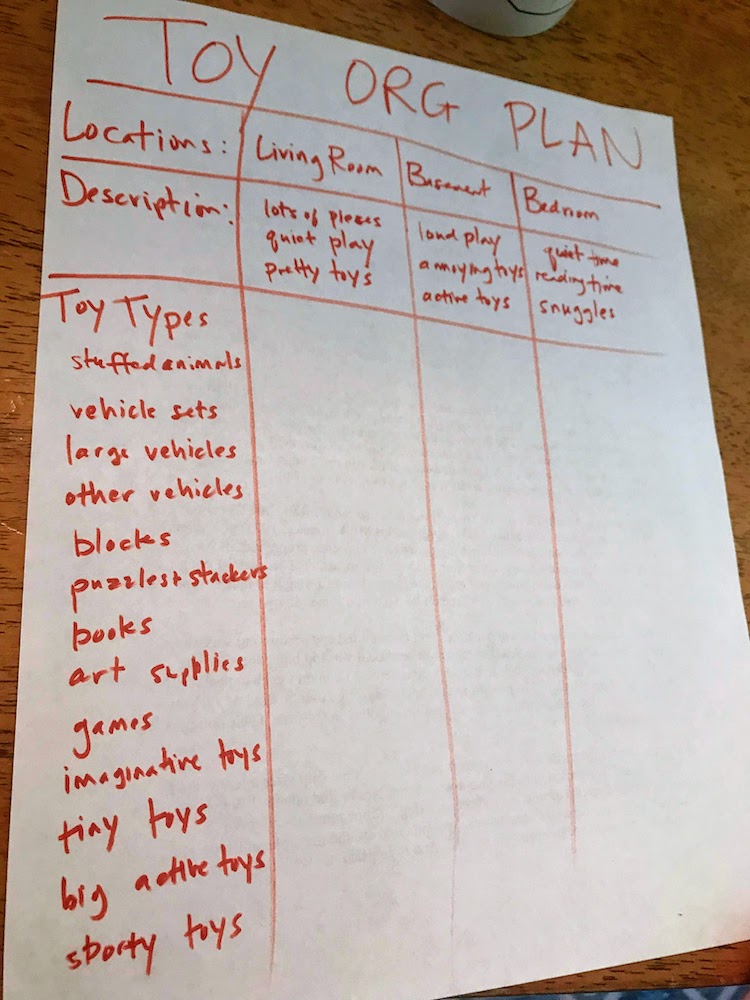 TOY ORG PLAN
Locations: Living Room Basement Bedroom
Description: lots of pieces loud play quiet time
quiet play annoying toys reading time
pretty toys active toys snuggles
Toy Types
stuffed animals
vehicle sets
large vehicles
other vehicles
blocks
puzzles + stackers
books
art supplies
games
imaginative toys
tiny toys
big active toys
sporty toys